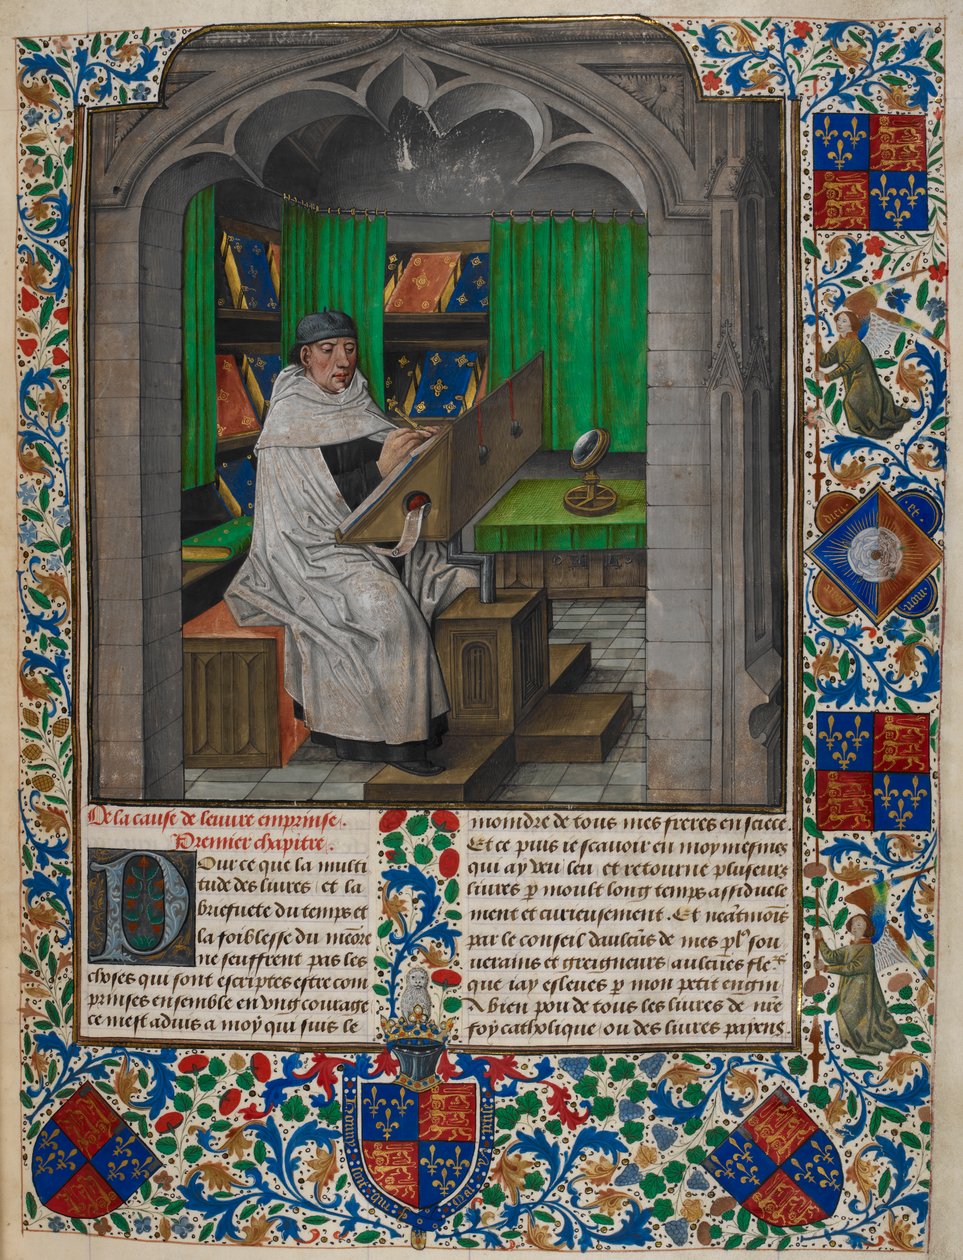 De la cause de leuure emprinse.
Premier chapitre.
Pour ce que la multi
tude des liures, et la
briefuete du temps et
la foiblesse du memore
ne seuffrent pas les
choses qui sont escriptes estre com
prinses ensemble en vng courage
ce m'est aduis a moy qui suis le
moindre de tous mes freres en ce siecle.
Et ce puis ie scauoir en moy mesmes
qui ay veu leu et retourne pluseurs
liures p moult long temps assiduele
ment et curieusement. Et neatmoins
par le conseil daulcuns de mes plꝰ sou
uerains et greigneurs aulcunes fle
que iay esleues p mon petit engin
A bien pou de tous les liures de nre
foy catholique, ou des liures payens
dieu et
Honny soit qui mal y pense